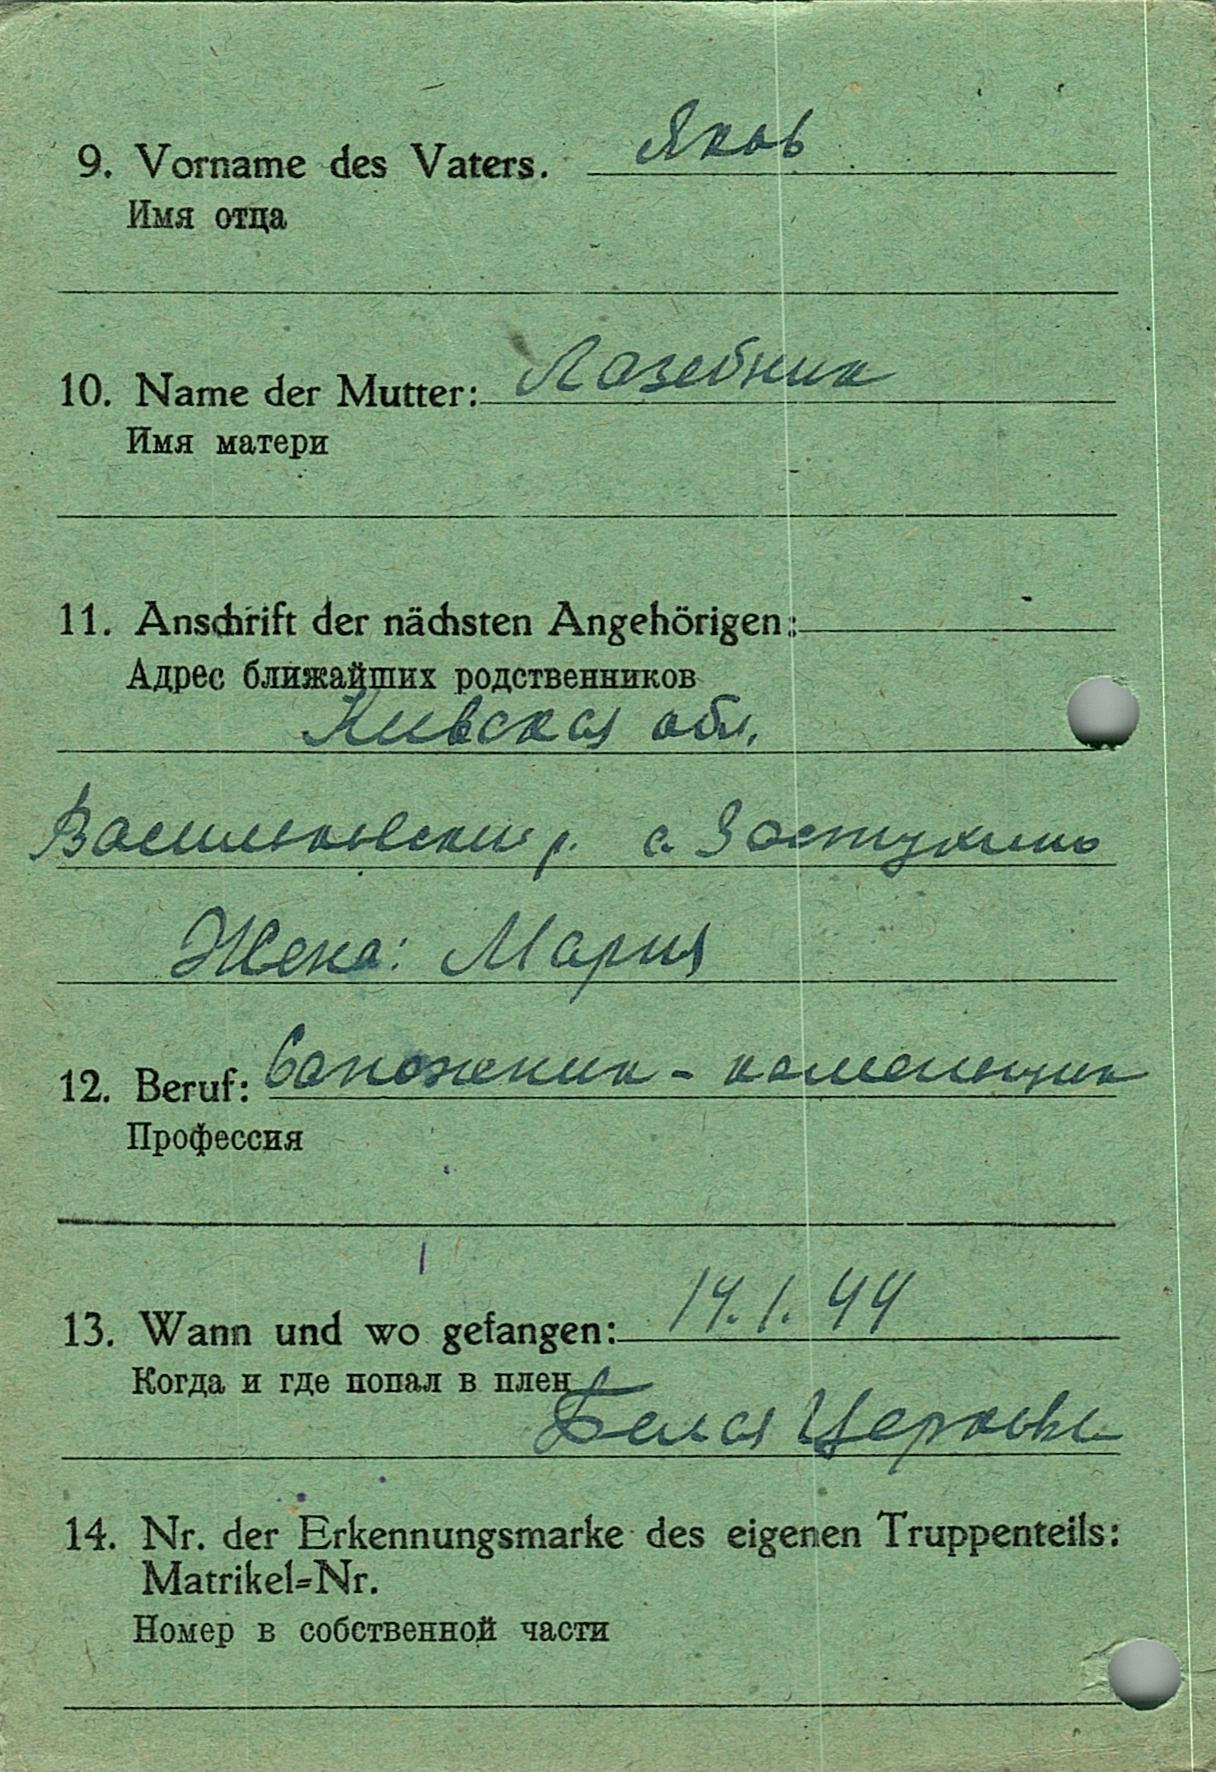 9. Vorname des Vaters. Яков
Имя отца
10. Name der Mutter: Лазебник
Имя матери
11. Anschrift der nächsten Angehörigen:
Адрес ближайших родственников
Киевская обл.
Васильковский р. с.
Жена: Мария
12. Beruf: Сапожник - каменщик
Профессия
13. Wann und wo gefangen: 14.1.44
Когда и где попал в плен
Белая Церковь
14. Nr. der Erkennungsmarke des eigenen Truppenteils:
Matrikel=Nr.
Номер в собственной части